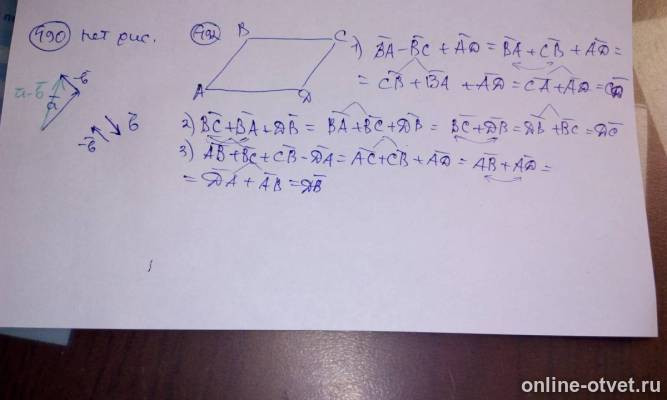 490 нет рис.
492
B C
A D
a̅-b̅ a̅ -b̅
-b̅ b̅
1) B̅A̅ - B̅C̅ + A̅D̅ = B̅A̅ + C̅B̅ + A̅D̅ =
= C̅B̅ + B̅A̅ + A̅D̅ = C̅A̅ + A̅D̅ = C̅D̅
2) B̅C̅ + B̅A̅ + D̅B̅ = B̅A̅ + B̅C̅ + D̅B̅ = B̅C̅ + D̅B̅ = D̅B̅ + B̅C̅ = D̅C̅
3) A̅B̅ + B̅C̅ + C̅B̅ - D̅A̅ = A̅C̅ + C̅B̅ + A̅D̅ = A̅B̅ + A̅D̅ =
= D̅A̅ + A̅B̅ = D̅B̅
online-otvet.ru